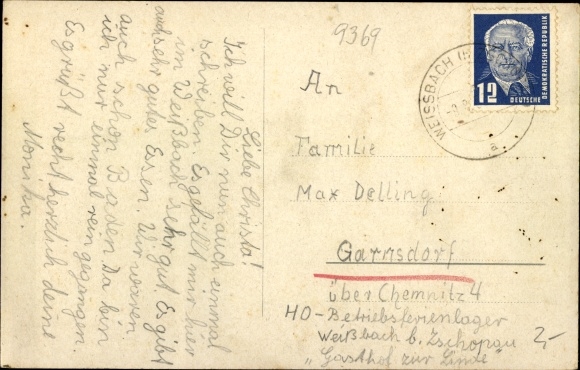 Liebe Christa!
Ich will Dir nun auch einmal
schreiben. Es gefällt mir hier
im Weißbach sehr gut. Es gibt
auch sehr gutes Essen. Wir waren
auch schon Baden. Da bin
ich nur einmal rein gegangen.
Es grüßt recht herzlich deine
Monika.
9369
WEISSBACH
12
DEUTSCHE
DEMOKRATISCHE REPUBLIK
a
An
Familie
Max Delling
Garnsdorf
über Chemnitz 4
HO-Betriebsferienlager
Weißbach b. Zschopau
„Gasthof zur Linde"
2,-